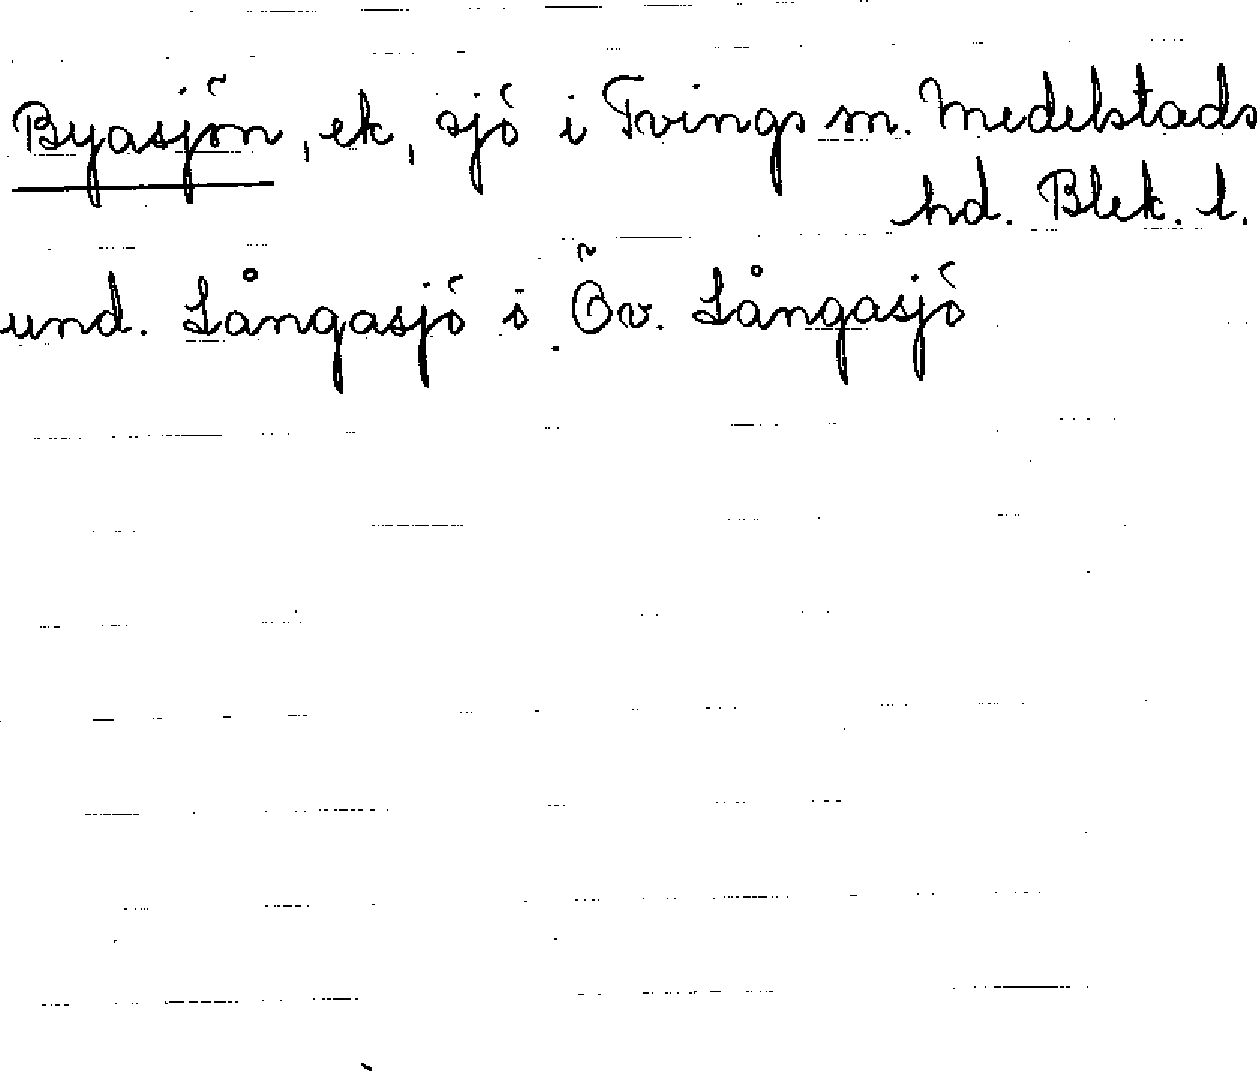 Byasjön, ek, sjö i Tvings sn. Medelstads
hd. Blek. l.
und. Långasjö i Öv. Långasjö